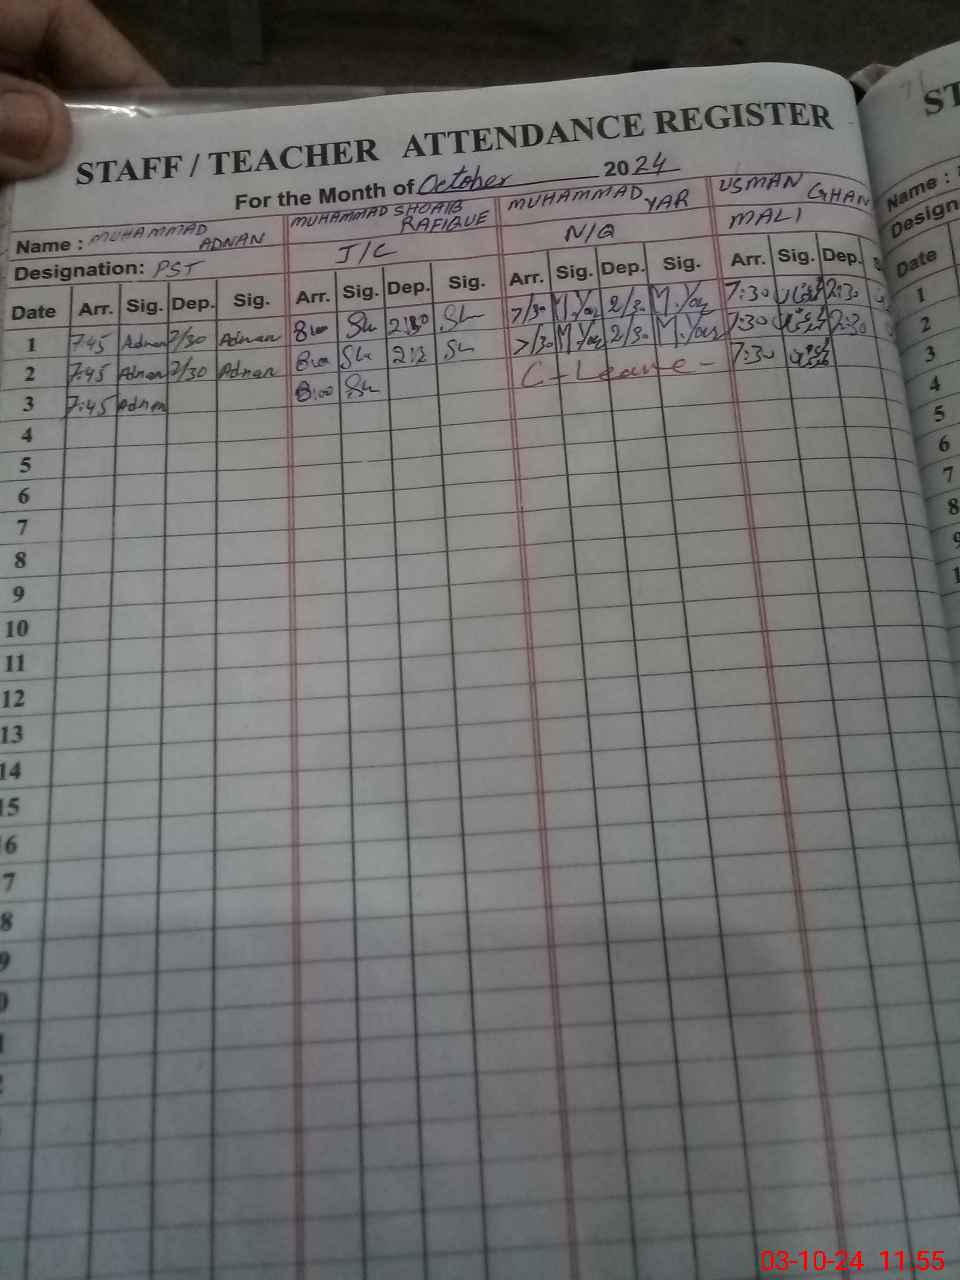 STAFF / TEACHER ATTENDANCE REGISTER
For the Month of October 2024
Name : MUHAMMAD ADNAN MUHAMMAD SHOAIB RAFIQUE MUHAMMAD YAR USMAN GHANI
Designation: PST J/C N/Q MALI
Date Arr. Sig. Dep. Sig. Arr. Sig. Dep. Sig. Arr. Sig. Dep. Sig. Arr. Sig. Dep.
1 7:45 Adnan 2/30 Adnan 8:00 Sh 2:30 Sh 7/30 M.Yar 2/30 M.Yar 7:30 2:30
2 7:45 Adnan 2/30 Adnan 8:00 Sh Sh 7/30 M.Yar 2/30 M.Yar 7:30 2:30
3 7:45 Adnan 8:00 Sh C-Leave- 7:30
4
5
6
7
8
9
10
11
12
13
14
15
6
7
8
9
ST
Name :
Design
Date
1
2
3
4
5
6
7
8
9
1
03-10-24 11.55